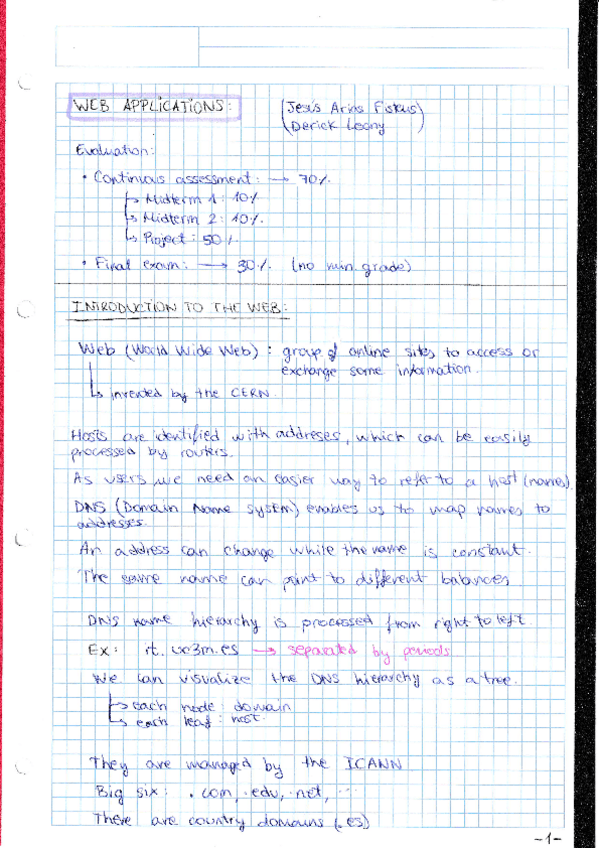 WEB APPLICATIONS: (Jesús Arias Fisteus
Derick Leony)
Evaluation:
• Continuous assessment: → 70%
↳ Midterm 1: 10%
↳ Midterm 2: 10%.
↳ Project: 50%
• Final exam: → 30%. (no min. grade)
INTRODUCTION TO THE WEB:
Web (World Wide Web): group of online sites to access or
exchange some information.
↳ invented by the CERN.
Hosts are identified with addreses, which can be easily
processed by routers.
As users we need an easier way to refer to a host (names).
DNS (Domain Name System) enables us to map names to
addresses.
An address can change while the name is constant.
The same name can point to different balances.
DNS name hierarchy is processed from right to left.
Ex: it.uc3m.es → separated by periods
We can visualize the DNS hierarchy as a tree.
↳ each node: domain
↳ each leaf: host.
They are managed by the ICANN
Big six: .com, .edu, .net, ...
There are country domains (.es)
-1-